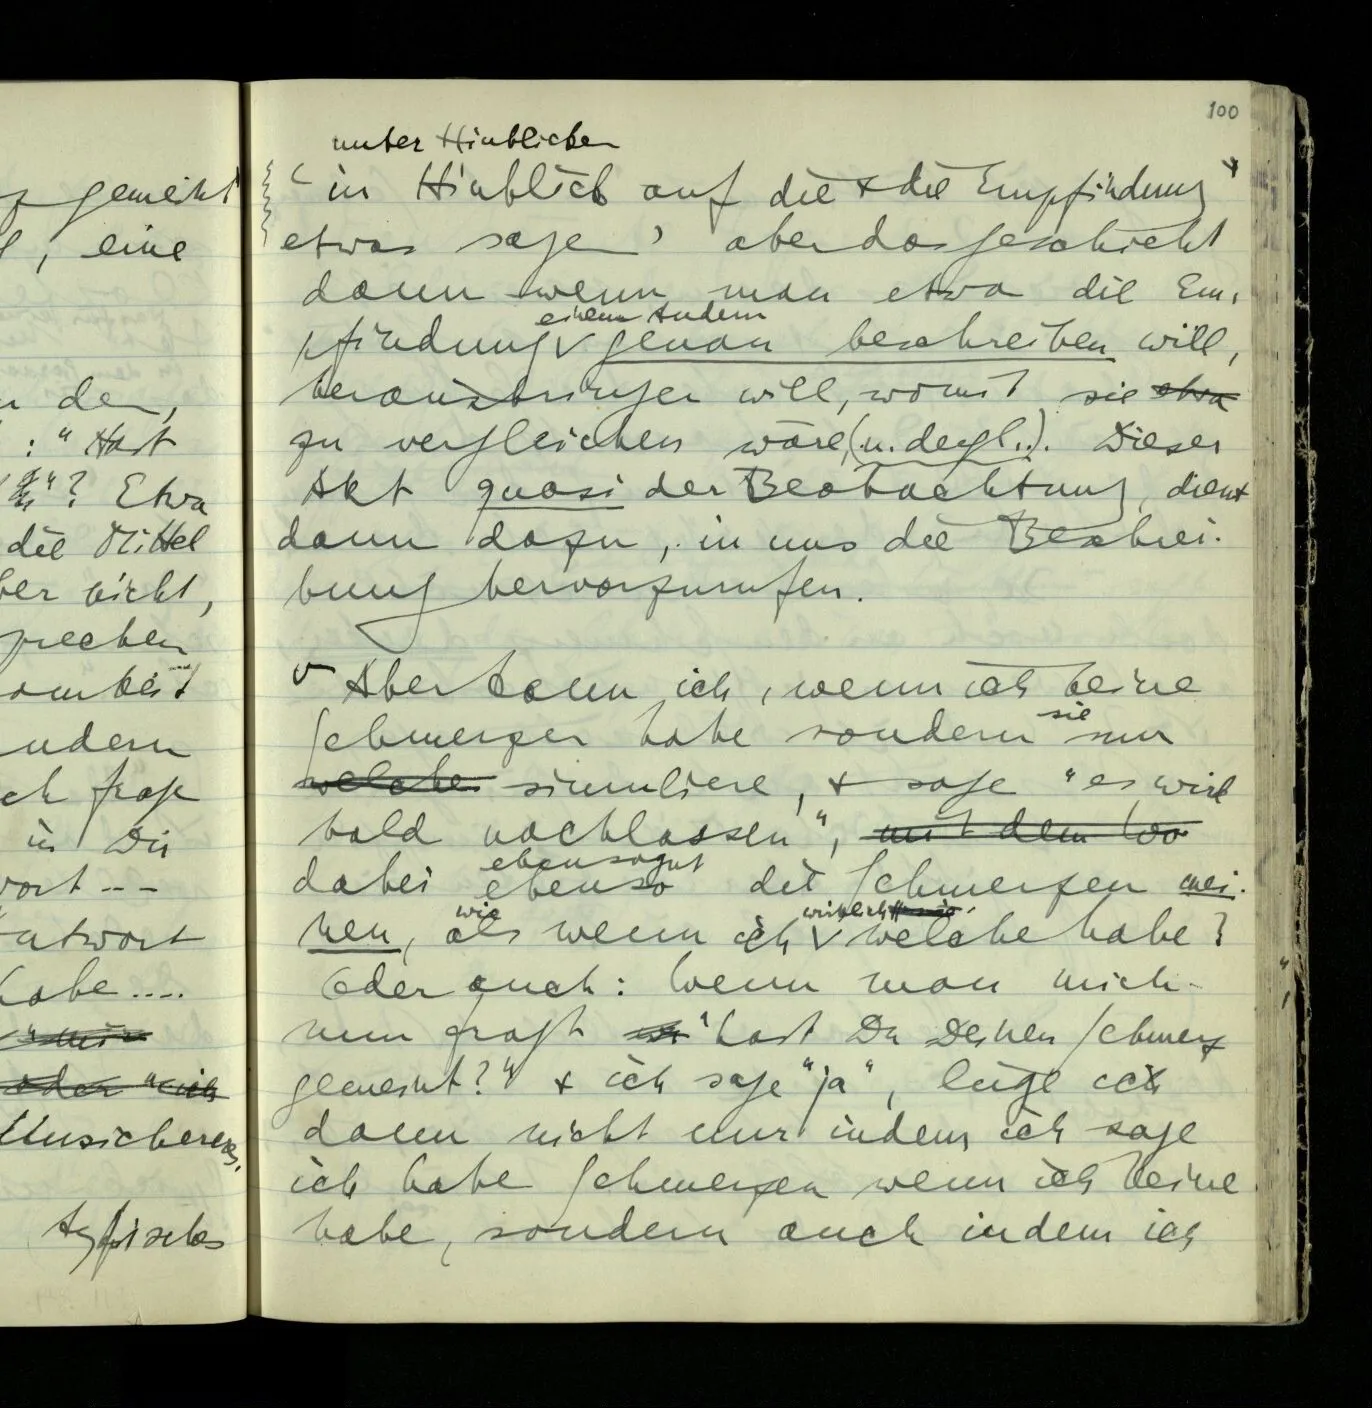 100
gemeint
, eine
der,
: " Hast
"? Etwa
die Mittel
ber nicht,
sprechen
amkeit
ndern
ch frage
in Dir
wort --
Antwort
habe ....
"mir
oder "ich
Unsicheres,
typisches
unter Hinblicken
in Hinblick auf die & die Empfindung
etwas sagen' aber das geschieht
dann wenn man etwa die Em-
einem Andern
pfindung genau beschreiben will,
herausbringen will, womit sie etwa
zu vergleichen wäre (u. dergl..). Dieser
Akt quasi der Beobachtung, dient
dann dazu, in uns die Beschrei-
bung hervorzurufen.
Aber kann ich, wenn ich keine
sie
Schmerzen habe sondern nur
welche simuliere, & sage "es wird
bald nachlassen", mit dem Wo
ebensogut
dabei ebenso die Schmerzen mei-
wie wirklich
nen, als wenn ich welche habe?
Oder auch: Wenn man mich
nun fragt "hast Du Deinen Schmerz
gemeint?" & ich sage "ja", lüge ich
dann nicht nur indem ich sage
ich habe Schmerzen wenn ich keine
habe, sondern auch indem ich